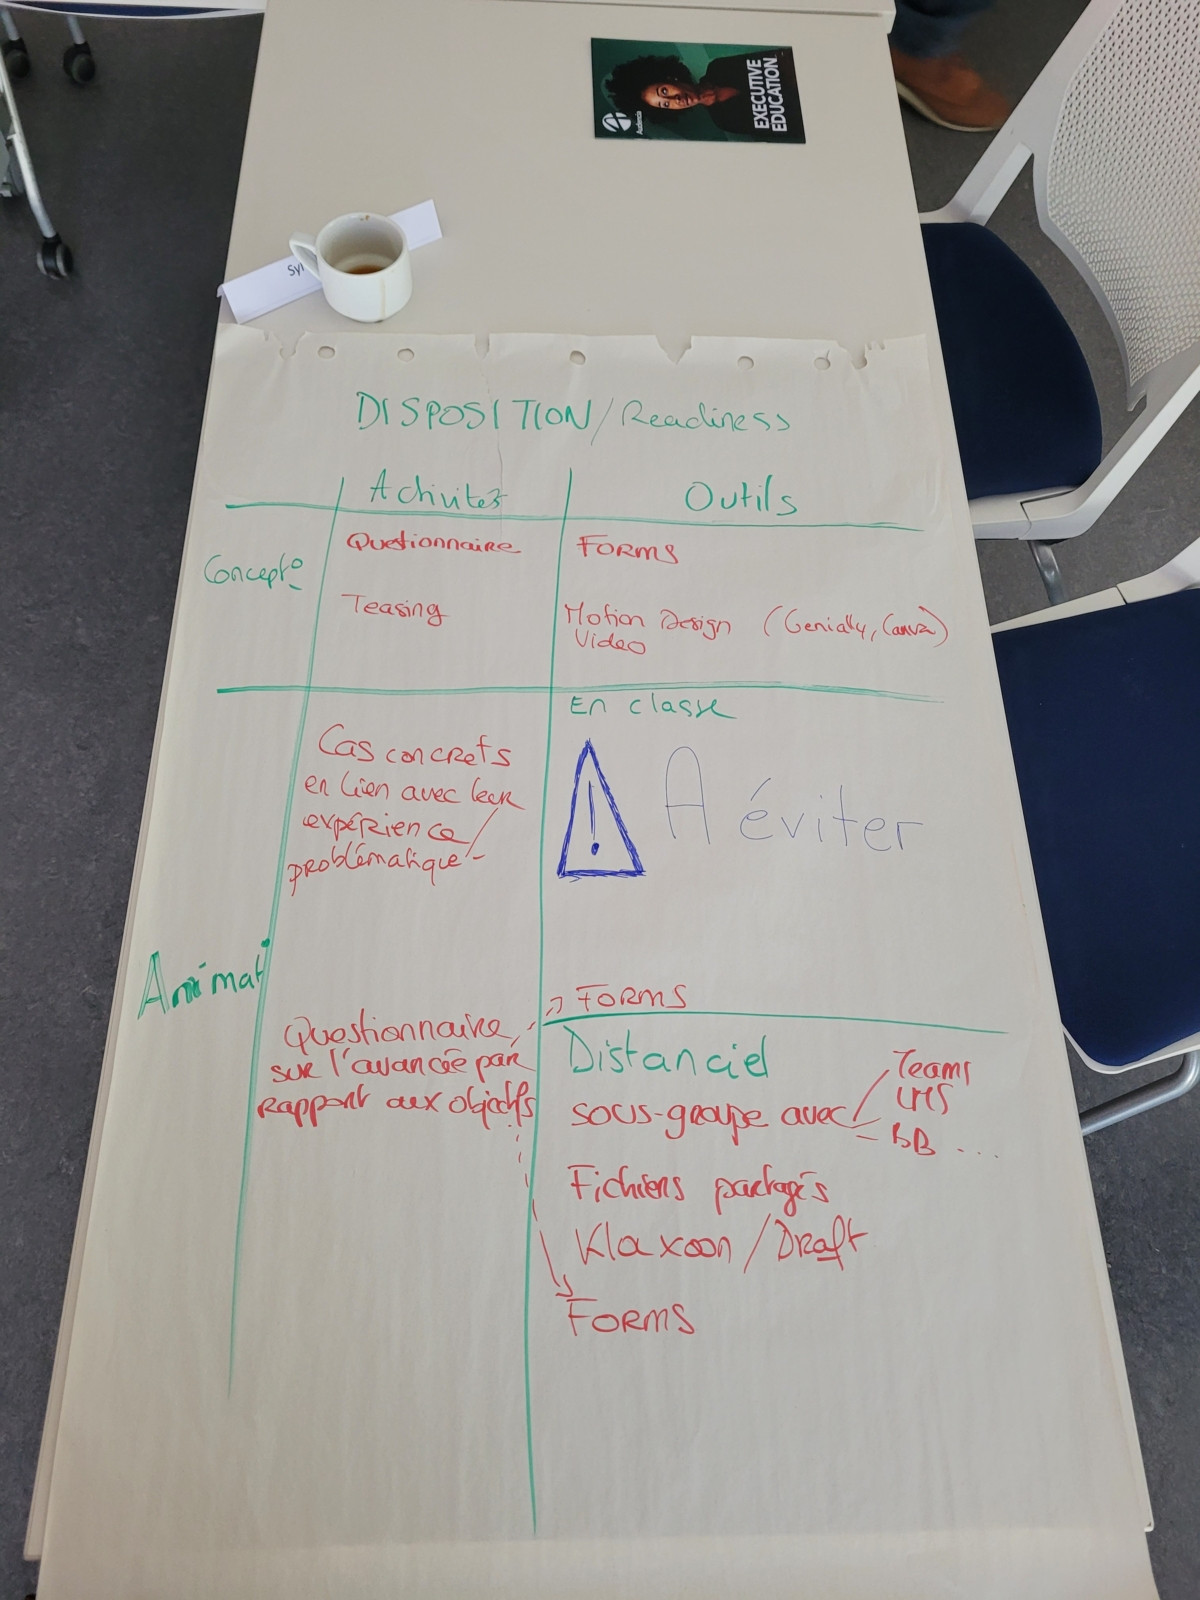 EXECUTIVE
EDUCATION
Audencia
Syl
DISPOSITION/Readiness
Activités
Outils
Concept°
Questionnaire
FORMS
Teasing
Motion Design (Genially, Canva)
Video
En classe
Cas concrets
en lien avec leur
expérience/
problématique
! A éviter
Animat°
FORMS
Questionnaire
sur l'avancée par
rapport aux objectifs
Distanciel
sous-groupe avec
Teams
LMS
BB ...
Fichiers partagés
Klaxoon/Draft
FORMS